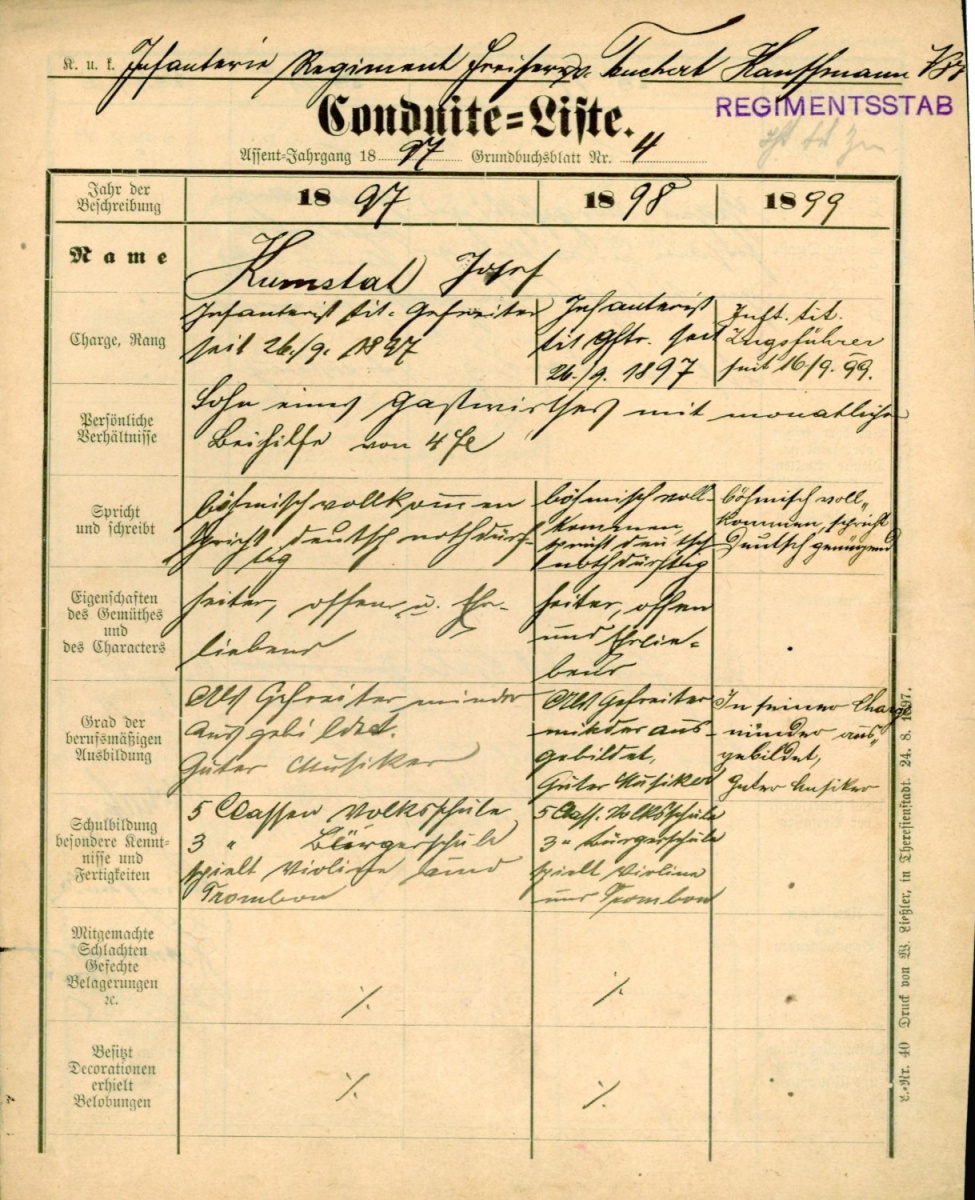 K. u. k. Infanterie Regiment Freiherr v. Teuchert Kauffmann
REGIMENTSSTAB
Conduite=Liste.
Assent=Jahrgang 1897 Grundbuchsblatt Nr. 4
Jahr der Beschreibung
1897
1898
1899
Name
Kumstat Josef
Charge, Rang
Infanterist tit. Gefreiter
seit 26./9. 1897
Infanterist
tit Gftr. seit
26./9. 1897
Inft. tit.
Zugsführer
seit 16/9. 99.
Persönliche
Verhältnisse
Sohn eines Gastwirthes mit monatlicher
Beihilfe von 4 fl
Spricht
und schreibt
böhmisch vollkommen
spricht deutsch nothdürf-
tig
böhmisch voll-
kommen,
spricht deutsch
nothdürftig
böhmisch voll„
kommen, spricht
Deutsch genügend
Eigenschaften
des Gemüthes
und
des Characters
heiter, offen u. Ehr-
liebend
heiter, offen
und Ehrlie-
bend
Grad der
berufsmäßigen
Ausbildung
Als Gefreiter minder
ausgebildet.
Guter Musiker
Als Gefreiter
minder aus-
gebildet,
Guter Musiker
In seiner Charge
minder aus„
gebildet,
Guter Musiker
Schulbildung
besondere Kennt=
nisse und
Fertigkeiten
5 Classen Volksschule
3 „ Bürgerschule
spielt Violine und
Trombon
5 Class. Volksschule
3 „ Bürgerschule
spielt Violine
und Trombon
Mitgemachte
Schlachten
Gefechte
Belagerungen
2c.
./.
./.
Besitzt
Decorationen
erhielt
Belobungen
./.
./.
L.=Nr. 40 Druck von W. Ließler, in Theresienstadt. 24. 8. 1897.